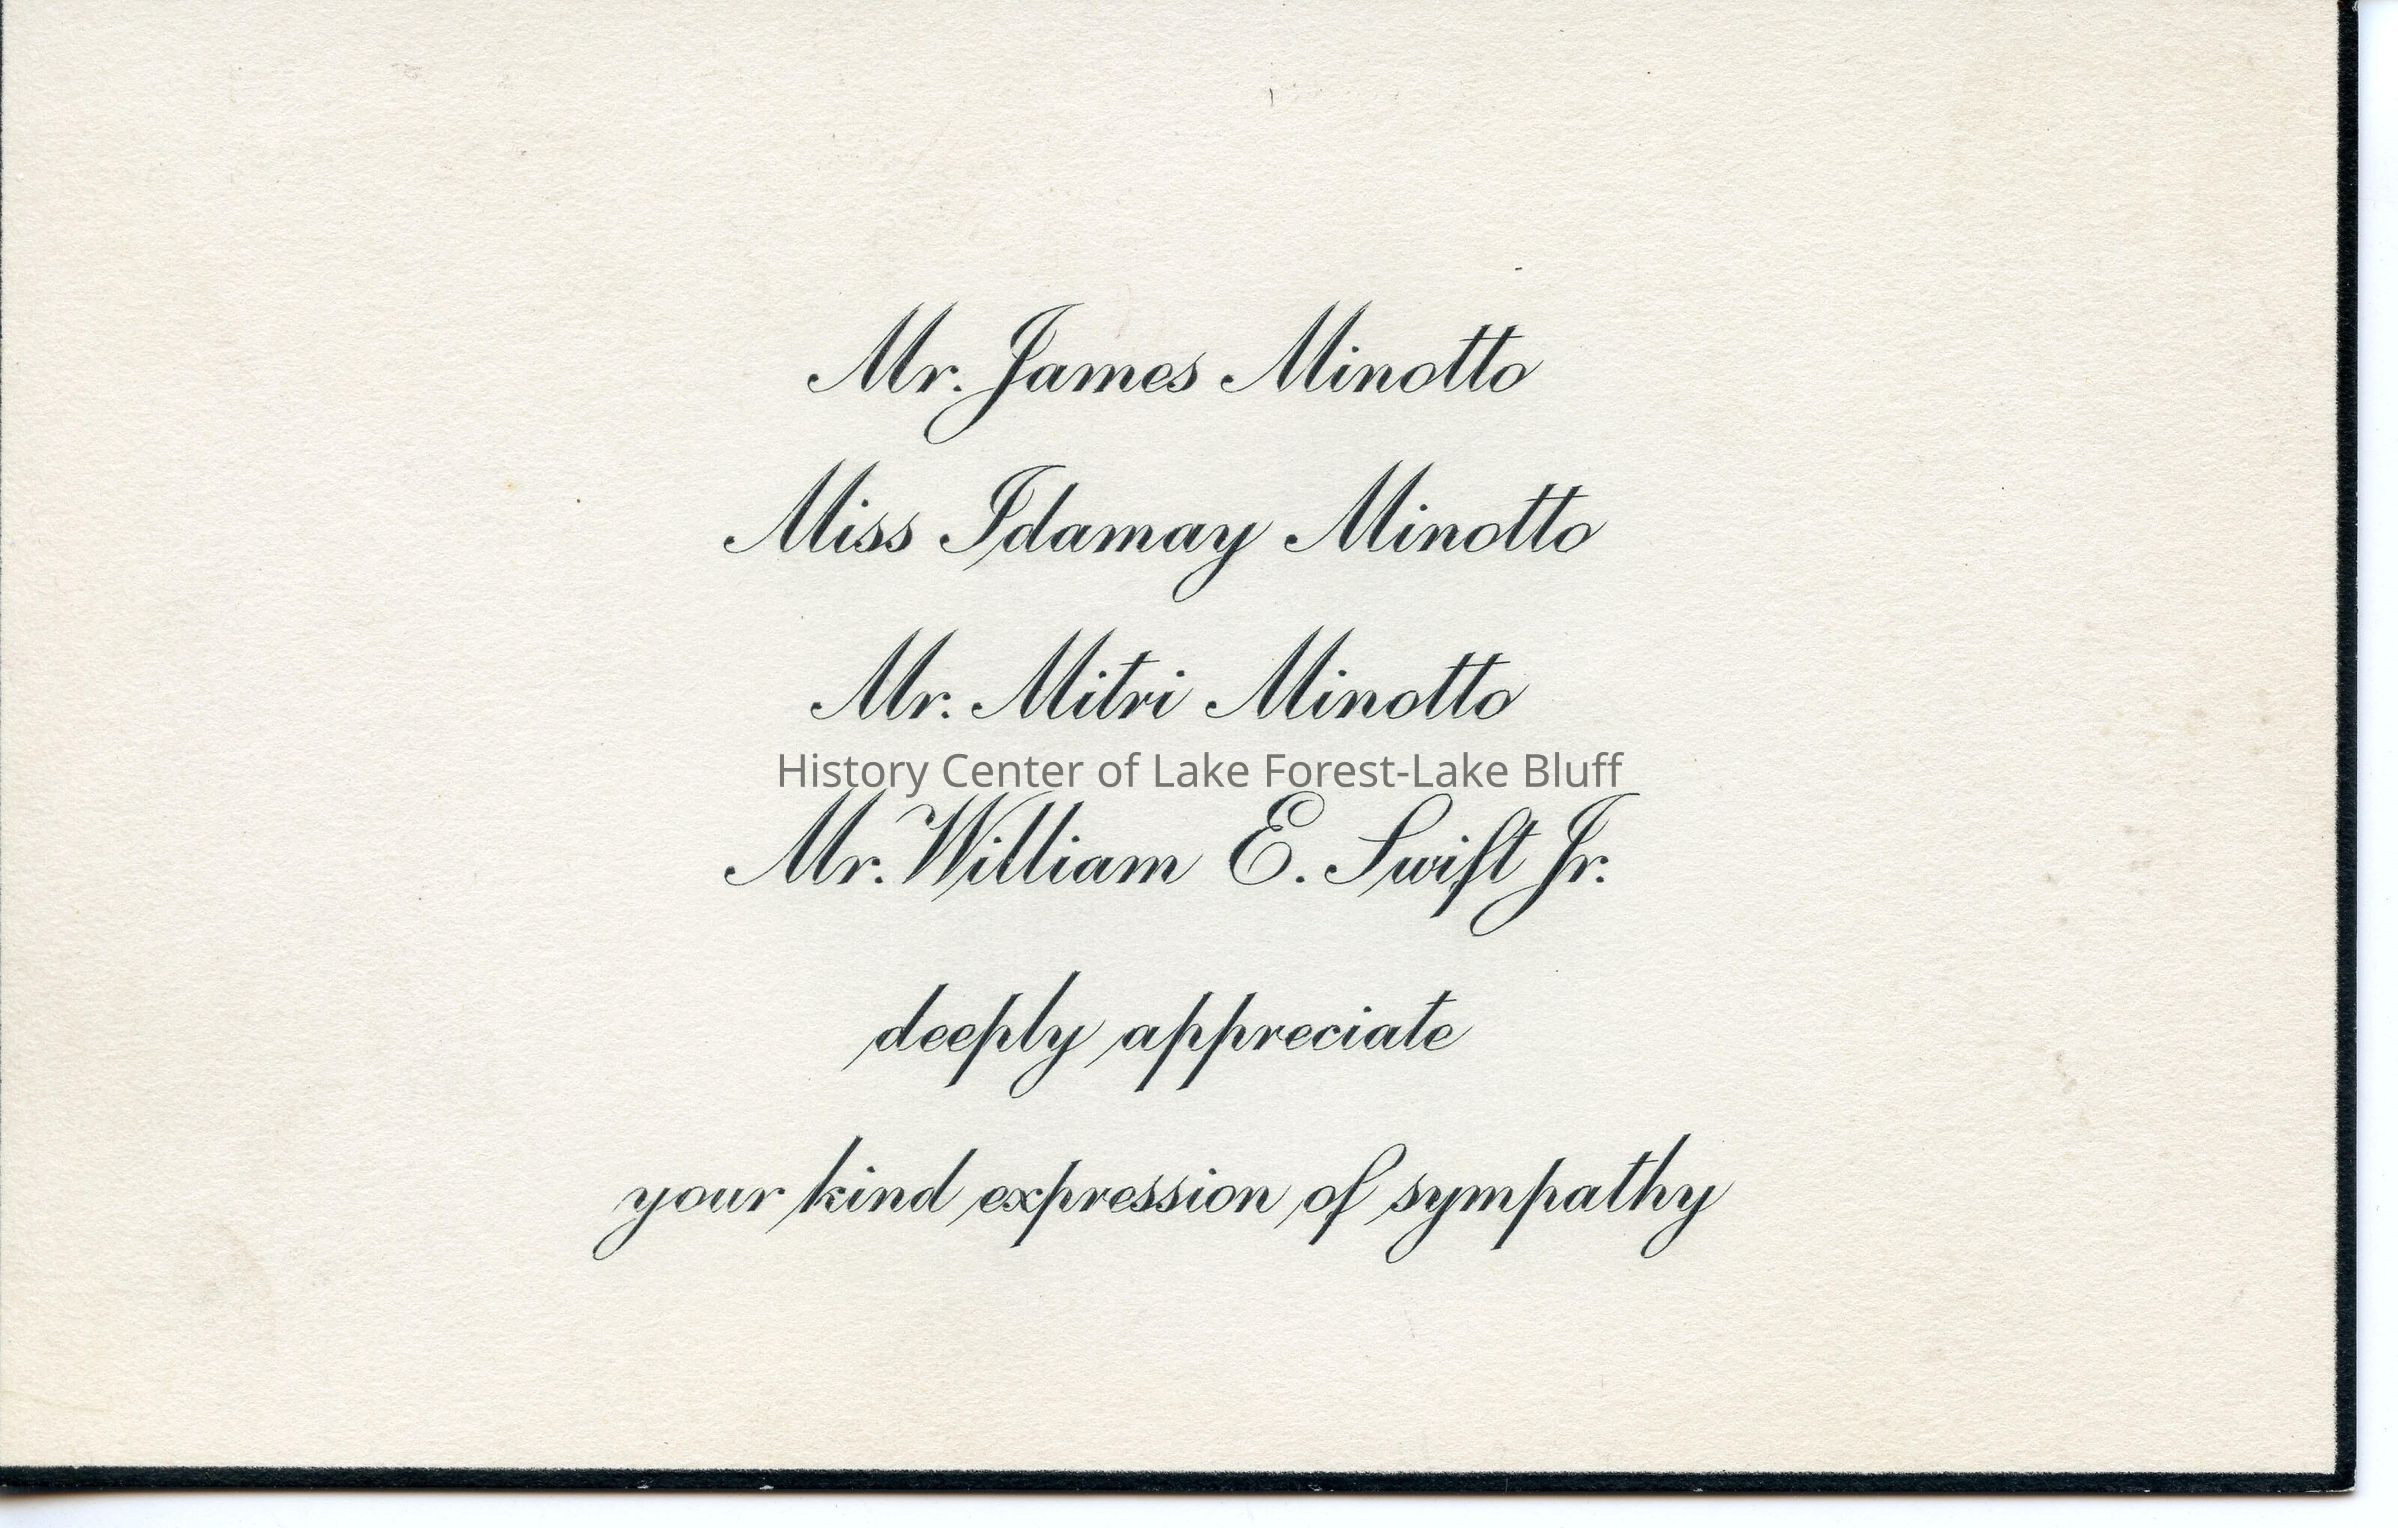 Mr. James Minotto
Miss Idamay Minotto
Mr. Mitri Minotto
History Center of Lake Forest-Lake Bluff
Mr. William E. Swift Jr.
deeply appreciate
your kind expression of sympathy